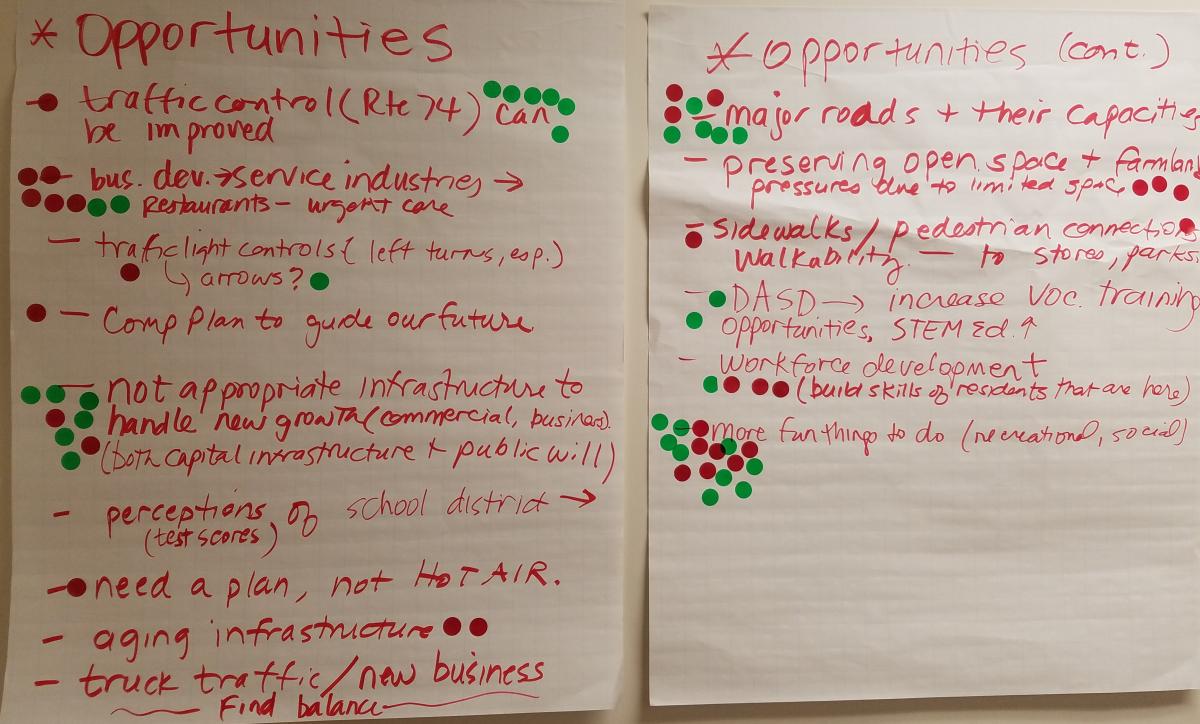 * Opportunities
- traffic control (Rte 74) can
be improved
- bus. dev. → service industries →
Restaurants - urgent care
- traffic light controls { left turns, esp.)
↳ arrows?
- Comp Plan to guide our future
- not appropriate infrastructure to
handle new growth (commercial, business)
(both capital infrastructure + public will)
- perceptions of school district →
(test scores)
- need a plan, not HOT AIR.
- aging infrastructure
- truck traffic/new business
Find balance
* Opportunities (cont.)
- major roads + their capacities
- preserving open space + farmland
pressures due to limited space
- sidewalks/pedestrian connections
walkability. - to stores, parks
- DASD → increase voc. training
opportunities, STEM Ed. ↑
- workforce development
(build skills of residents that are here)
- more fun things to do (recreational, social)